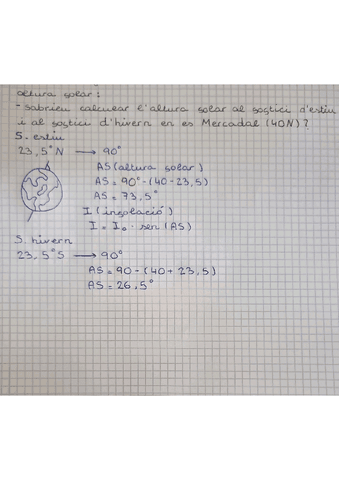 altura solar:
- Sabrieu calcular l'altura solar al sostici d'estiu
i al sostici d'hivern en es Mercadal (40N)?
S. estiu
23,5° N → 90°
AS (altura solar)
AS = 90° - (40 - 23,5)
AS = 73,5°
I (insolació)
I = I₀ · sen (AS)
S. hivern
23,5° S → 90°
AS = 90 - (40 + 23,5)
AS = 26,5°